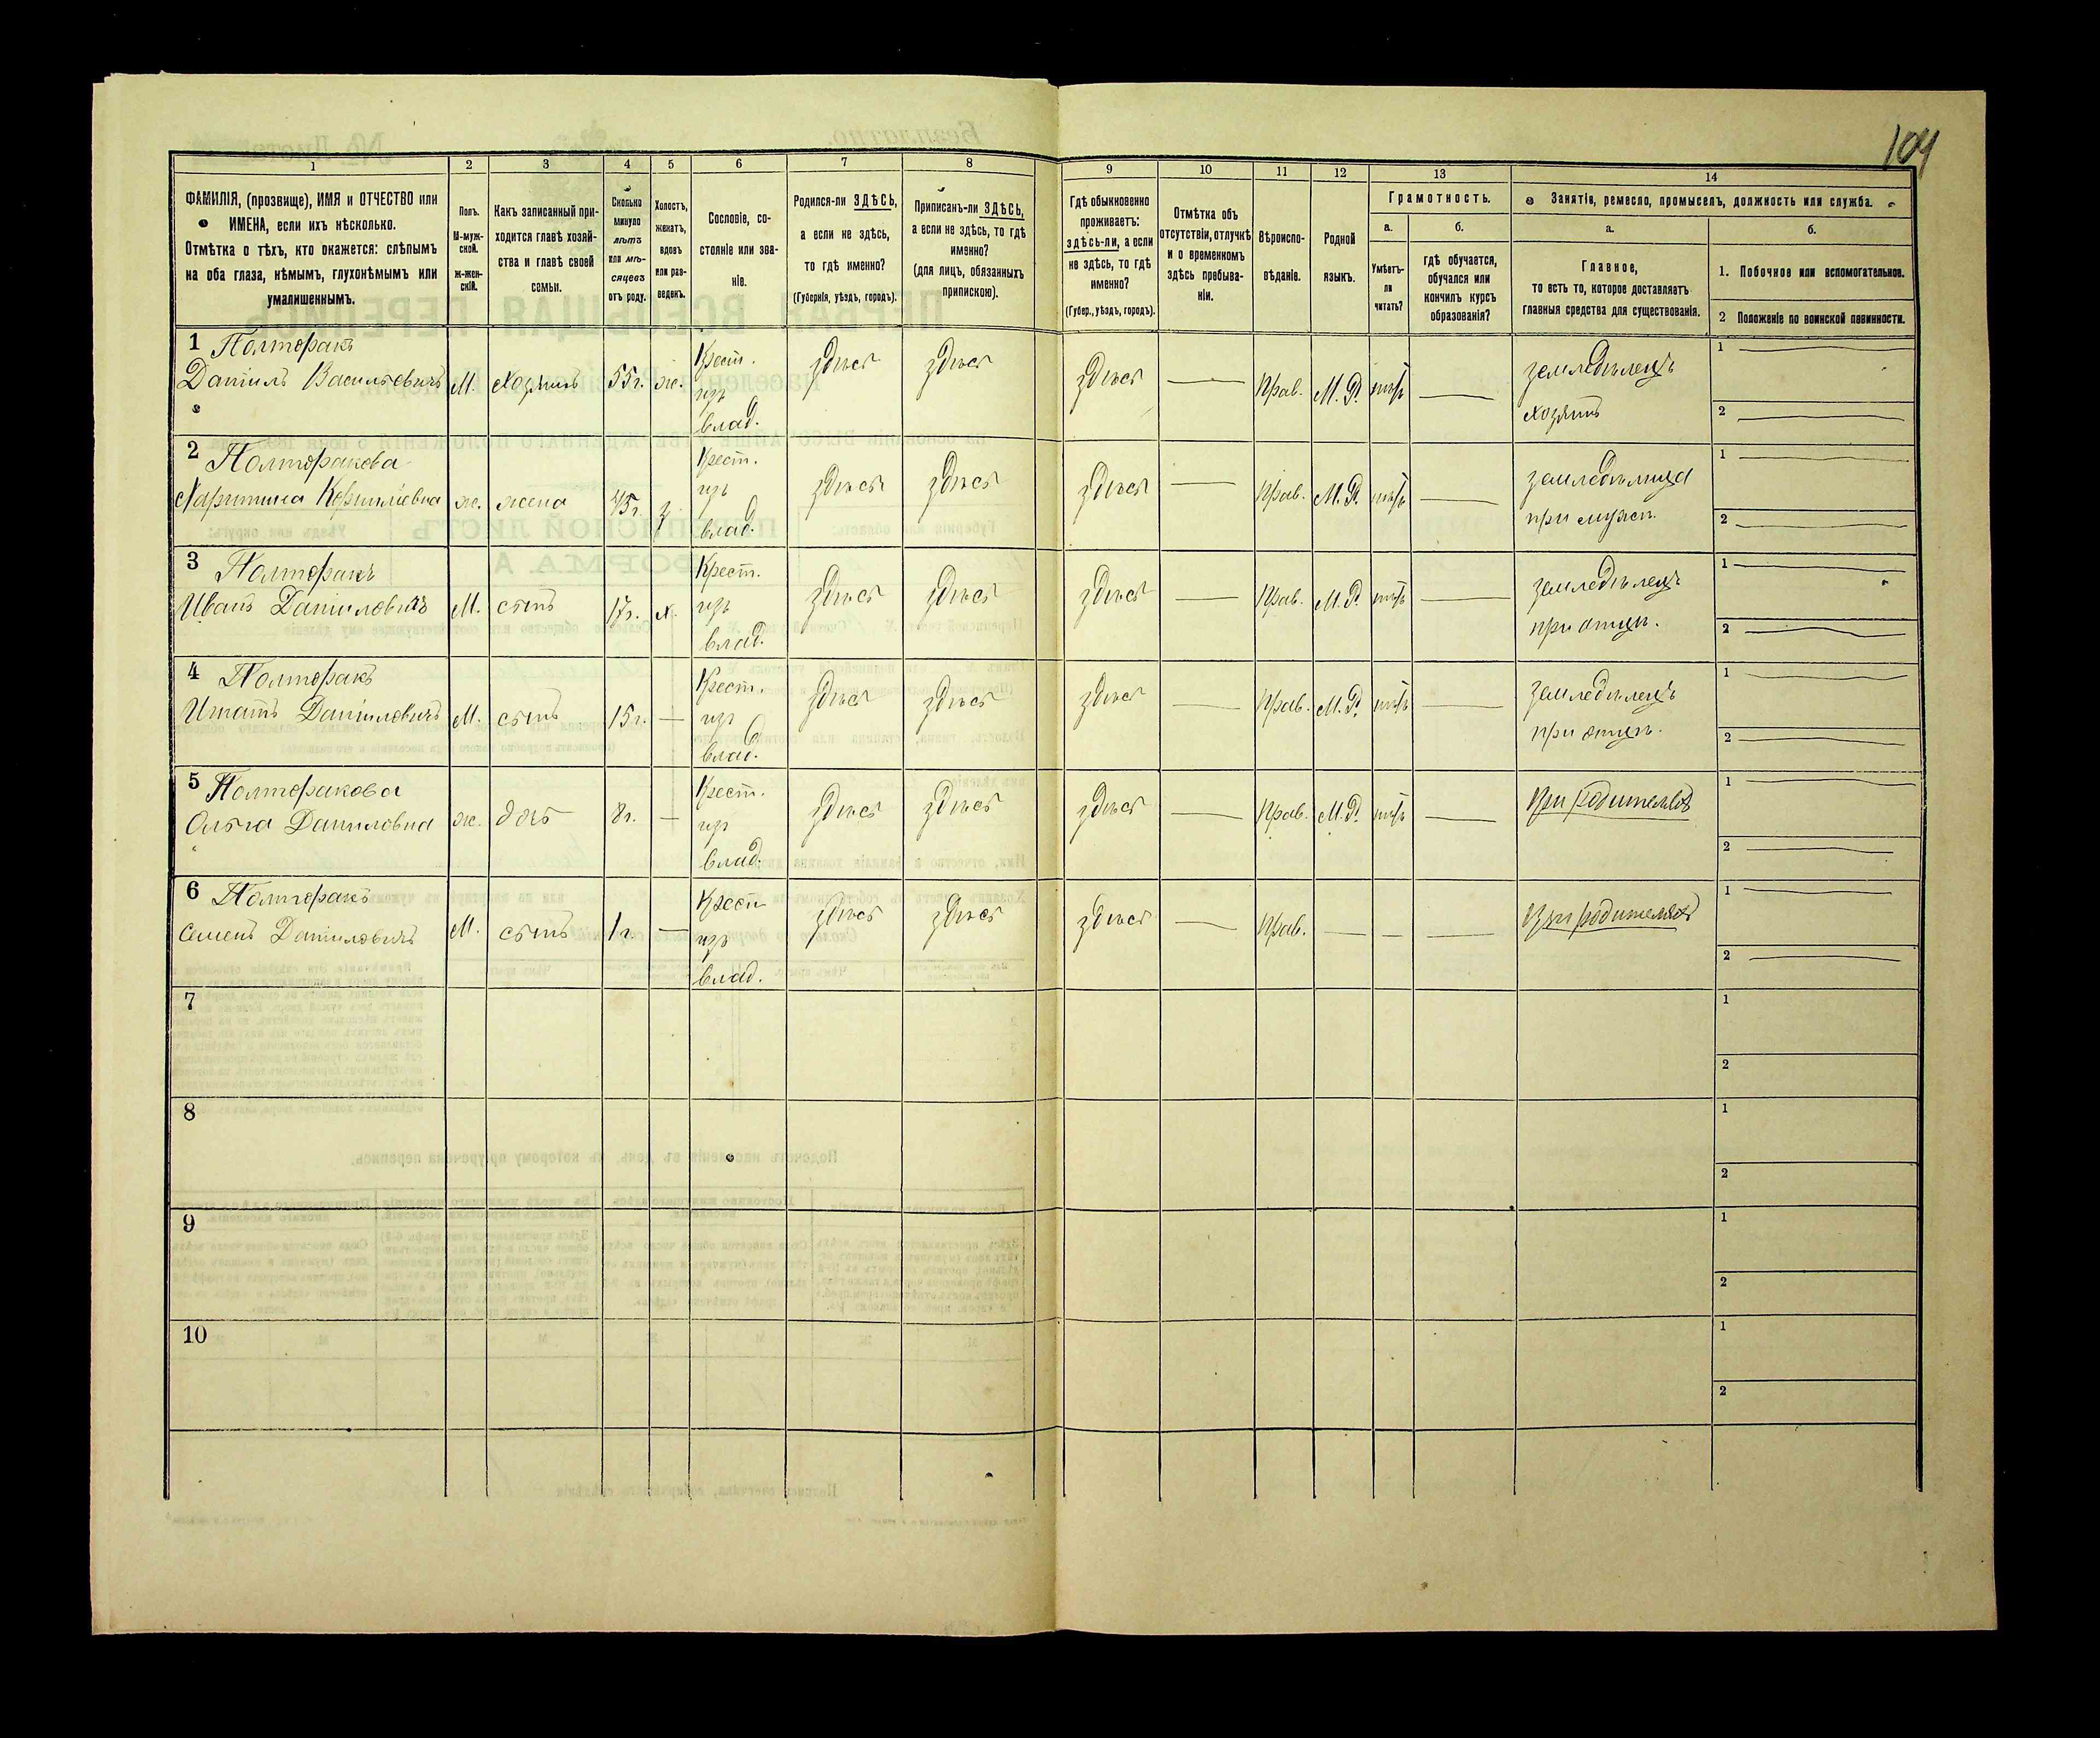 104
1
2
3
4
5
6
7
8
9
10
11
12
13
14
ФАМИЛІЯ, (прозвище), ИМЯ и ОТЧЕСТВО или
ИМЕНА, если ихъ нѣсколько.
Отмѣтка о тѣхъ, кто окажется: слѣпымъ
на оба глаза, нѣмымъ, глухонѣмымъ или
умалишеннымъ.
Полъ.
М-муж-
ской.
ж-жен-
скій.
Какъ записанный при-
ходится главѣ хозяй-
ства и главѣ своей
семьи.
Сколько
минуло
лѣтъ
или мѣ-
сяцевъ
отъ роду.
Холостъ,
женатъ,
вдовъ
или раз-
веденъ.
Сословіе, со-
стояніе или зва-
ніе.
Родился-ли ЗДѢСЬ,
а если не здѣсь,
то гдѣ именно?
(Губернія, уѣздъ, городъ).
Приписанъ-ли ЗДѢСЬ,
а если не здѣсь, то гдѣ
именно?
(для лицъ, обязанныхъ
припискою).
Гдѣ обыкновенно
проживаетъ:
здѣсь-ли, а если
не здѣсь, то гдѣ
именно?
(Губер., уѣздъ, городъ).
Отмѣтка объ
отсутствіи, отлучкѣ
и о временномъ
здѣсь пребыва-
ніи.
Вѣроиспо-
вѣданіе.
Родной
языкъ.
Грамотность.
а.
б.
Умѣетъ-
ли
читать?
гдѣ обучается,
обучался или
кончилъ курсъ
образованія?
Занятіе, ремесло, промыселъ, должность или служба.
а.
б.
Главное,
то есть то, которое доставляетъ
главныя средства для существованія.
1. Побочное или вспомогательное.
2 Положеніе по воинской повинности.
1 Полторакъ
Даніилъ Васильевичъ М. Хозяинъ 55 г. ж. Крест. изъ влад. здѣсь здѣсь здѣсь — Прав. М. Р. нѣтъ — земледѣлецъ хозяинъ
1
2
2 Полторакова
Харитина Корниліевна ж. жена 45 г. з. Крест. изъ влад. здѣсь здѣсь здѣсь — Прав. М. Р. нѣтъ — земледѣлица при мужѣ
1
2
3 Полторакъ
Иванъ Даніиловичъ М. сынъ 17 г. х. Крест. изъ влад. здѣсь здѣсь здѣсь — Прав. М. Р. нѣтъ — земледѣлецъ при отцѣ.
1
2
4 Полторакъ
Игнатъ Даніиловичъ М. сынъ 15 г. — Крест. изъ влад. здѣсь здѣсь здѣсь — Прав. М. Р. нѣтъ — земледѣлецъ при отцѣ.
1
2
5 Полторакова
Ольга Даниловна ж. дочь 8 г. — Крест. изъ влад. здѣсь здѣсь здѣсь — Прав. М. Р. нѣтъ — При родителяхъ
1
2
6 Полторакъ
Семенъ Даніиловичъ М. сынъ 1 г. — Крест изъ влад. здѣсь здѣсь здѣсь — Прав. — — — При родителяхъ
1
2
7
1
2
8
1
2
9
1
2
10
1
2